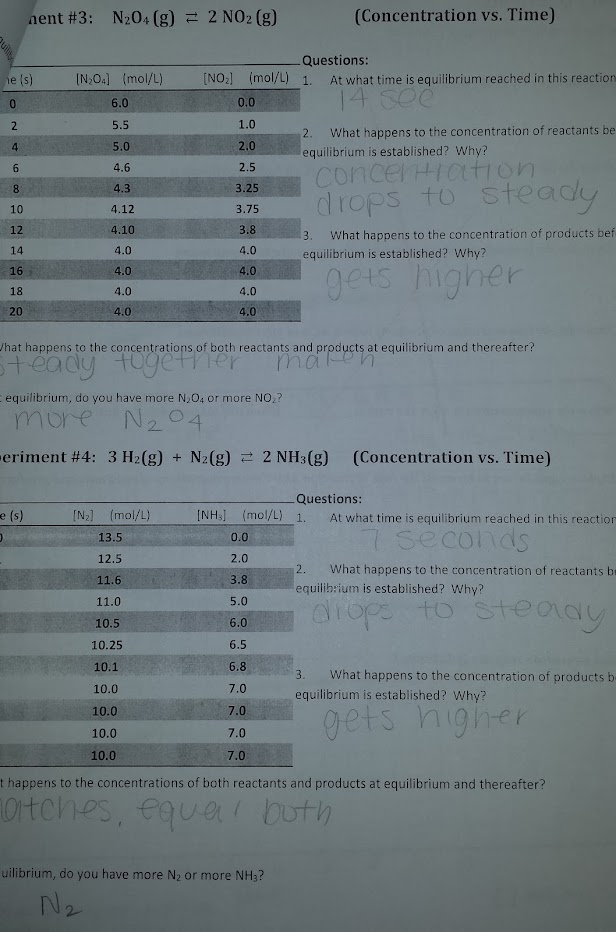 ment #3: N₂O₄ (g) ⇄ 2 NO₂ (g) (Concentration vs. Time)
Questions:
me (s) [N₂O₄] (mol/L) [NO₂] (mol/L)
0 6.0 0.0
2 5.5 1.0
4 5.0 2.0
6 4.6 2.5
8 4.3 3.25
10 4.12 3.75
12 4.10 3.8
14 4.0 4.0
16 4.0 4.0
18 4.0 4.0
20 4.0 4.0
1. At what time is equilibrium reached in this reaction
14 sec
2. What happens to the concentration of reactants be
equilibrium is established? Why?
concentration
drops to steady
3. What happens to the concentration of products bef
equilibrium is established? Why?
gets higher
What happens to the concentrations of both reactants and products at equilibrium and thereafter?
steady together match
equilibrium, do you have more N₂O₄ or more NO₂?
more N₂O4
periment #4: 3 H₂(g) + N₂(g) ⇄ 2 NH₃(g) (Concentration vs. Time)
Questions:
e (s) [N₂] (mol/L) [NH₃] (mol/L)
0 13.5 0.0
12.5 2.0
11.6 3.8
11.0 5.0
10.5 6.0
10.25 6.5
10.1 6.8
10.0 7.0
10.0 7.0
10.0 7.0
10.0 7.0
1. At what time is equilibrium reached in this reaction
7 seconds
2. What happens to the concentration of reactants be
equilibrium is established? Why?
drops to steady
3. What happens to the concentration of products b
equilibrium is established? Why?
gets higher
t happens to the concentrations of both reactants and products at equilibrium and thereafter?
atches, equal both
uilibrium, do you have more N₂ or more NH₃?
N₂